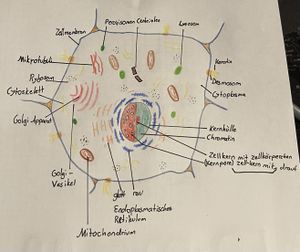 Zellmembran
Peroxisomen Centriolen
Lysosom
Mikrotubuli
Keratin
Ribosom
Desmosom
Cytoskelett
Cytoplasma
Golgi Apparat
Kernhülle
Chromatin
Zellkern mit
(Kernpore) Zellkern mit drauf
Golgi-
Vesikel
glatt rau
Endoplasmatisches
Retikulum
Mitochondrium